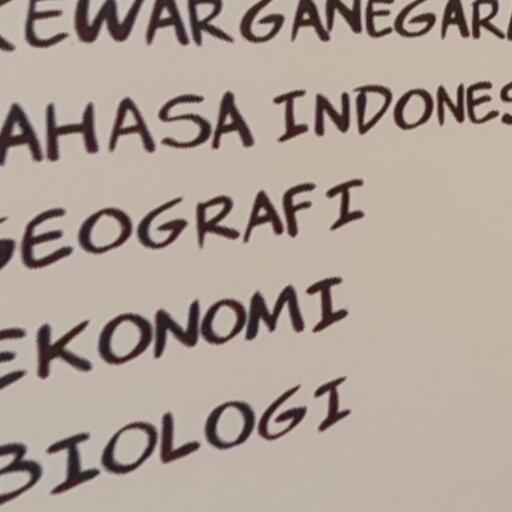 KEWARGANEGARA
AHASA INDONES
GEOGRAFI
EKONOMI
BIOLOGI